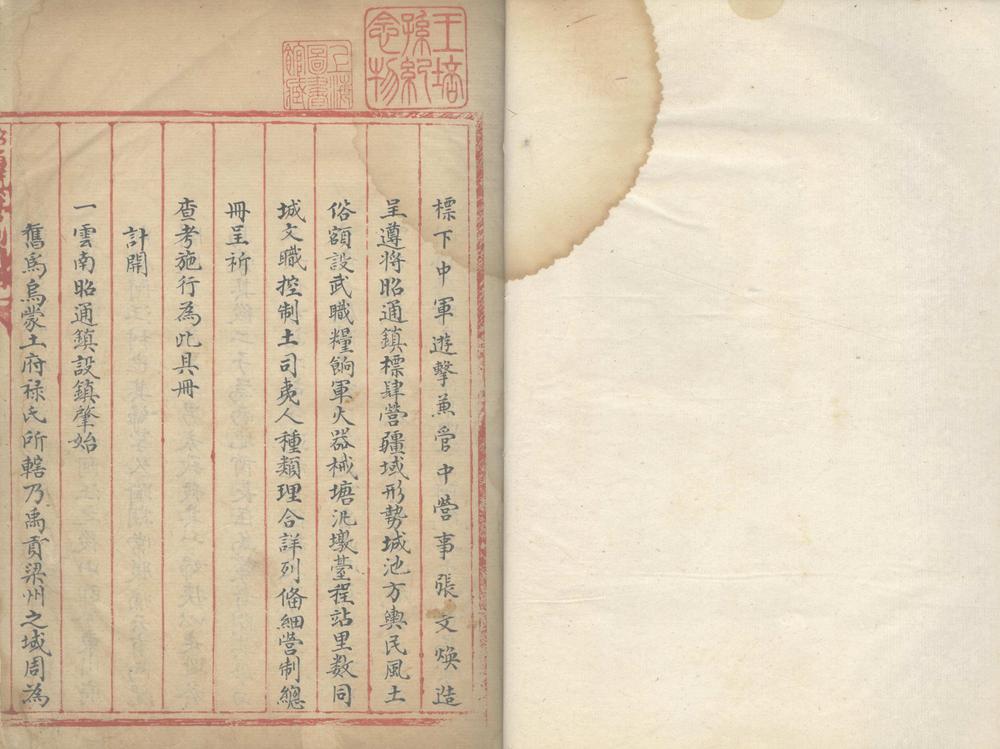 王培
孫紀
念物
上海
圖書
館藏
標下中軍遊擊兼管中營事張文煥造
呈遵將昭通鎮標肆營疆域形勢城池方輿民風土
俗額設武職糧餉軍火器械塘汛墩臺程站里数同
城文職控制土司夷人種類理合詳列俻細營制總
冊呈祈
查考施行為此具冊
計開
一雲南昭通鎮設鎮肇始
舊為烏蒙土府禄氏所轄乃禹貢梁州之域周為